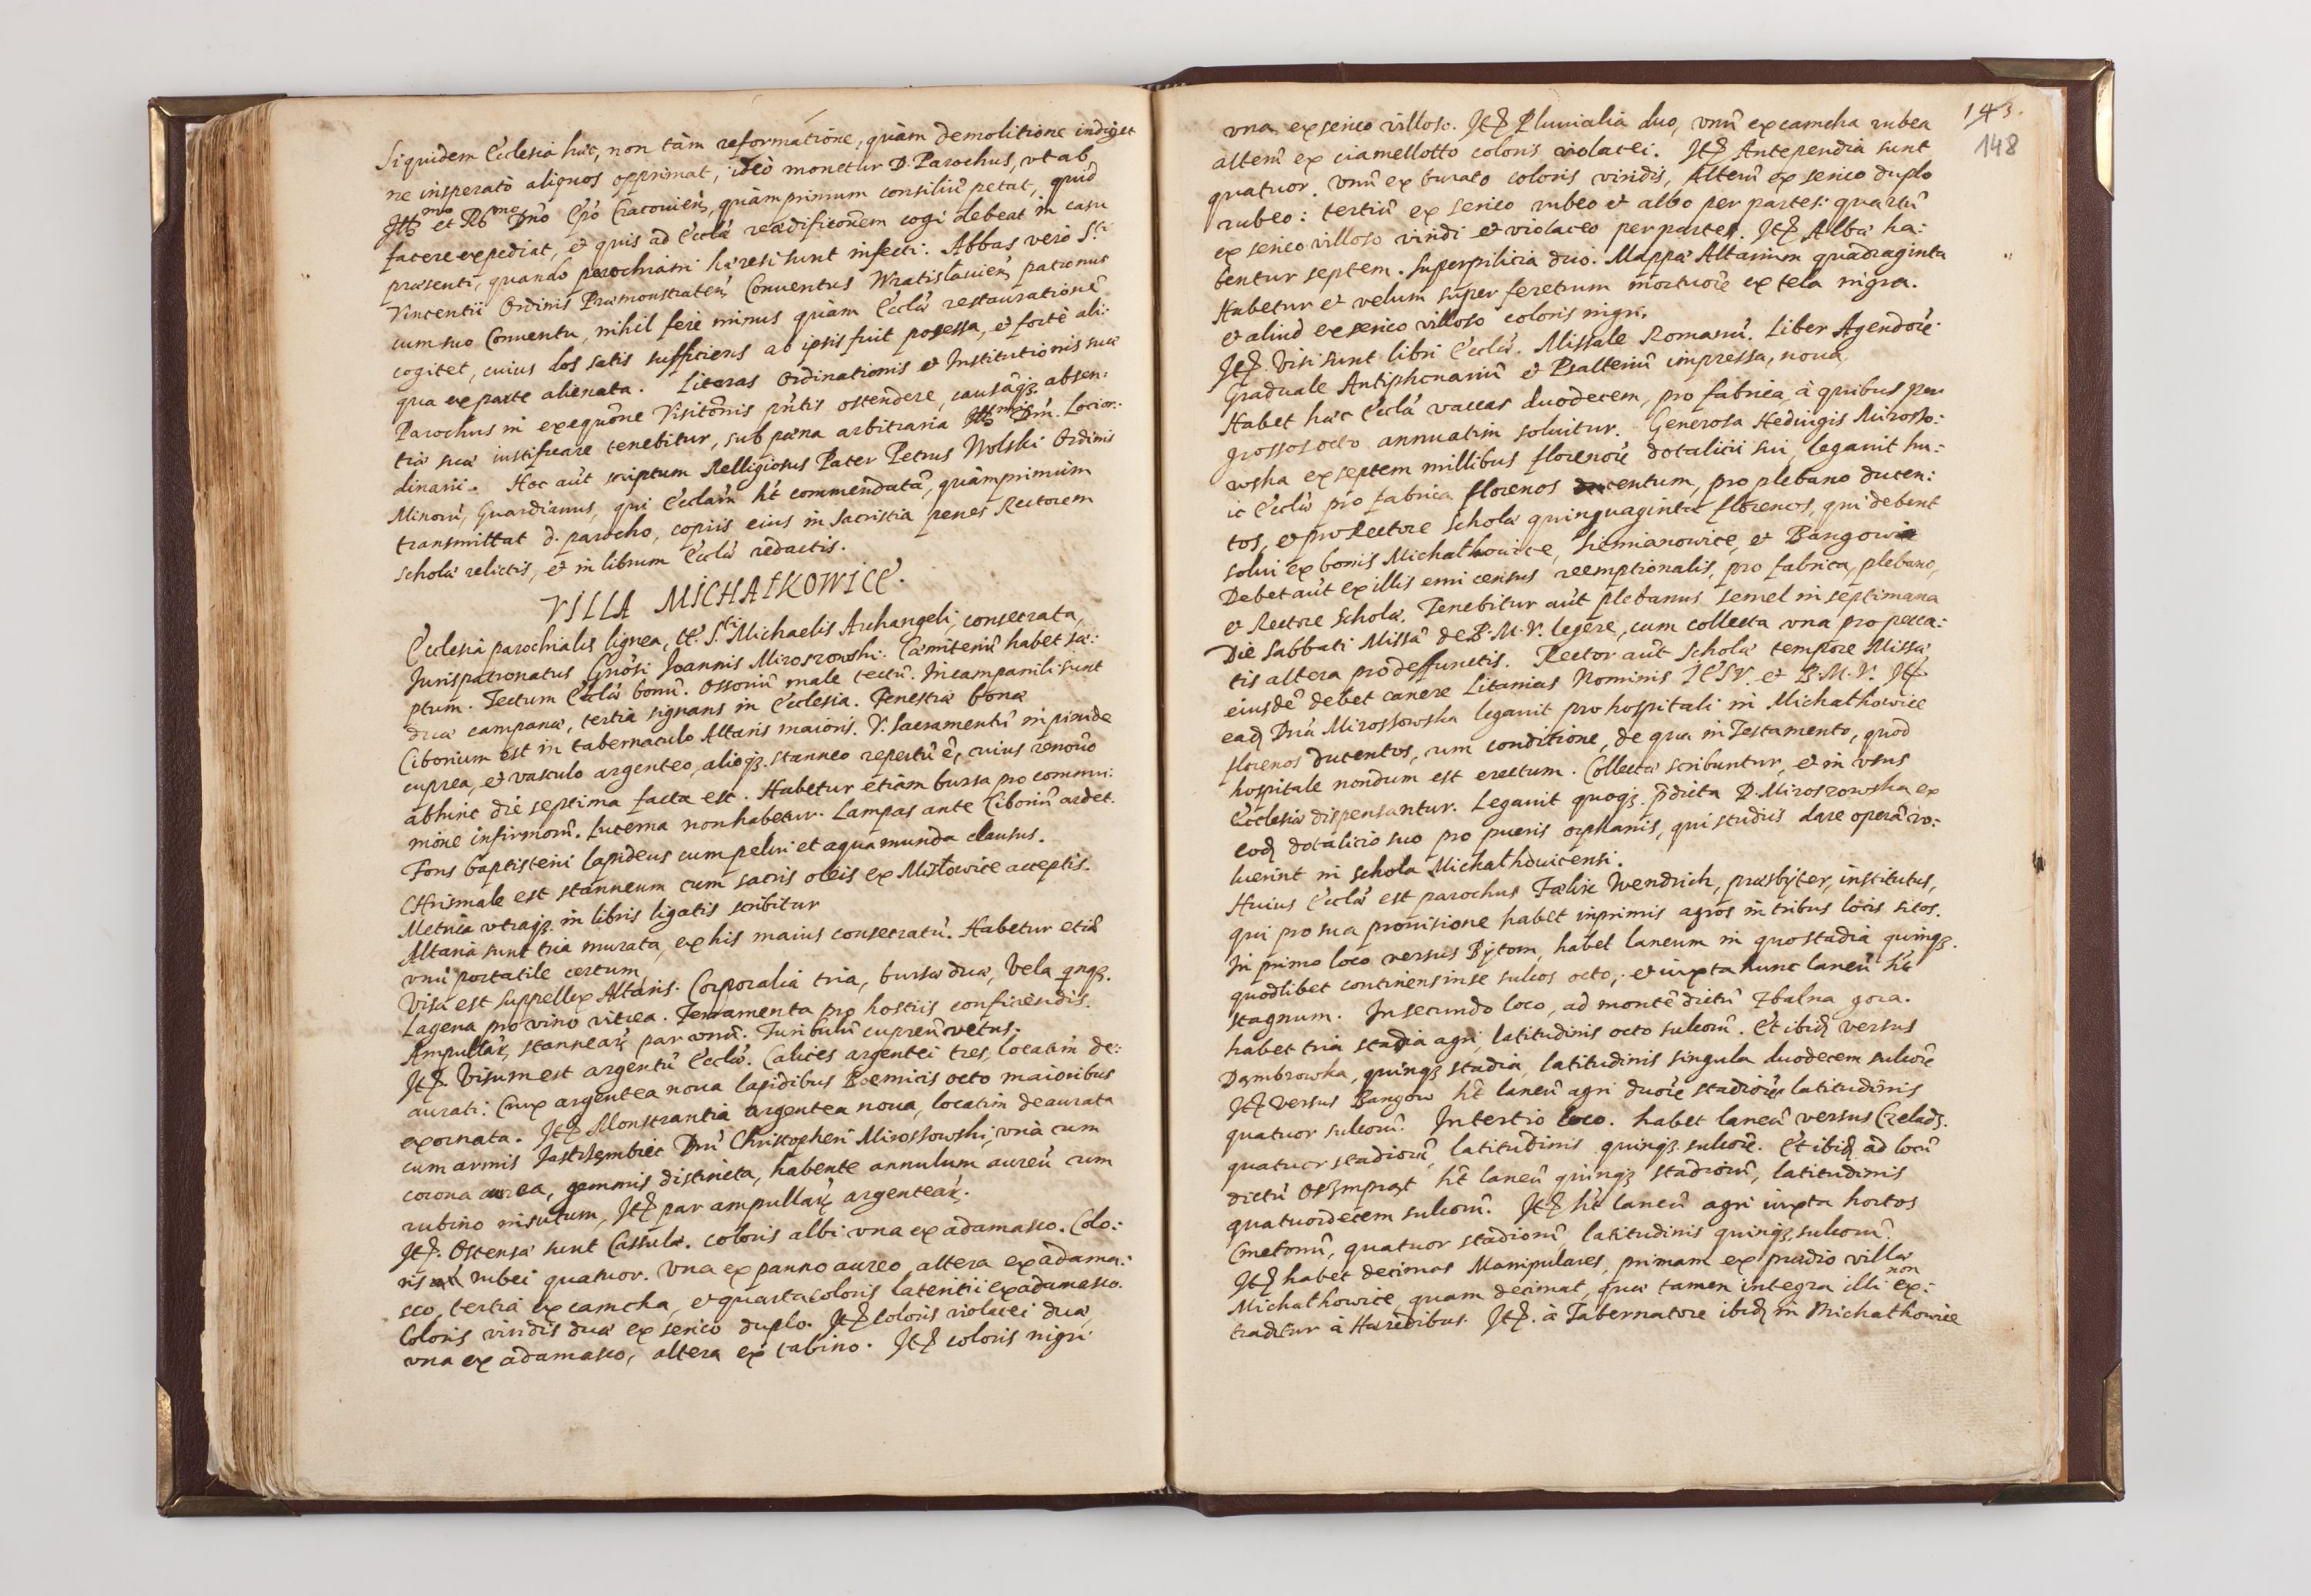 Siquidem Ecclesia hæc, non tàm reformatione, quàm demolitione indiget
ne insperatò aliquos opprimat, ideò monetur D. Parochus, vt ab
Ill͂mo et Rᵐᵒ Dnō Epō Cracouien͂, quàmprimum consiliū petat, quid
facere expediat, et quis ad Ecclæ reædificonēm cogi debeat in casu
præsenti, quando parochiani hæresi sunt infecti. Abbas verò S.ti
Vincentii Ordinis Præmonstraten͂, Conuentus Wratislauien͂ patronus
cum suo Conuentu, nihil ferè minus quàm Ecclæ restaurationē
cogitet, cuius dos satis sufficiens ab ipsis fuit possessa, et fortè ali:
qua ex parte alienata. Literas Ordinationis et Institutionis suæ
Parochus in exequōne Visitōnis pn̄tis ostendere, causāqꝫ absen:
tiæ suæ iustificare tenebitur, sub pæna arbitraria Ill͂mi Dn̄i Locior:
dinarii. Hoc aūt scriptum Relligiosus Pater Petrus Wolski Ordinis
Minorū, Guardianus, qui Ecclam̄ hēt commendatā, quàmprimùm
transmittat d. parocho, copiis eius in Sacristia penes Rectorem
scholæ relictis, et in librum Ecclæ redactis.
VILLA MICHAŁKOWICE.
Ecclesia parochialis lignea, tt. S.cti Michaelis Archangeli, consecrata,
Jurispatronatus Gnōsi Joannis Miroszowski. Cæmiteriū habet sæ:
ptum. Tectum Ecclæ bonū. Ossoriū male tectū. In campanili sunt
duæ campanæ, tertia signans in Ecclesia. Fenestræ bonæ
Ciborium est in tabernaculo Altaris maioris. V. Sacramentū in pixide
cuprea, et vasculo argenteo, alioqꝫ stanneo repertū ē, cuius renouō
abhinc die septima facta est. Habetur etiàm bursa pro commu:
nione infirmorū. Lucerna non habetur. Lampas ante Ciboriū ardet.
Fons baptisterii lapideus cum pelui et aqua munda clausus.
CHrismale est stanneum cum sacris oleis ex Misłowice acceptis.
Metrica vtraqꝫ in libris ligatis scribitur
Altaria sunt tria murata, ex his maius consecratū. Habetur etiā
vnū portatile certum
Visa est suppellex Altaris. Corporalia tria, bursæ duæ, Vela qnqꝫ.
Lagena pro vino vitrea. Ferramenta pro hostiis conficiendis.
Ampullar͂ stannear͂ par vnū. Turibulū cupreū vetus.
Itꝫ. Visum est argentū Ecclæ. Calices argentei tres, locatim de:
aurati: Crux argentea noua lapidibus Boemicis octo maioribus
exornata. Itꝫ Monstrantia argentea noua, locatim deaurata
cum armis Jastrzembiec Dn̄i Christopheri Miroszowski, vnà cum
corona aurea, gemmis distincta, habente annulum aureū cum
rubino insutum, Itꝫ par ampullar͂ argentear͂.
Itꝫ. Ostensæ sunt Cassulæ. coloris albi vna ex adamasco. Colo:
ris rubei quatuor. Vna ex panno aureo, altera ex adama:
sco, tertia ex camcha, et quarta coloris lateritii ex adamasco.
Coloris viridis duæ ex serico duplo. Itꝫ coloris violacei duæ,
vna ex adamasco, altera ex tabino. Itꝫ coloris nigri
143.
148
vna ex serico villoso. Itꝫ Pluuialia duo, vnū ex camcha rubea
alterū ex ciamellotto coloris violacei. Itꝫ Antependia sunt
quatuor. Vnū ex burato coloris viridis, Alterū ex serico duplo
rubeo: tertiū ex serico rubeo et albo per partes: quartū
ex serico villoso viridi et violaceo per partes. Itꝫ Albæ ha:
bentur septem. Superpilicia duo. Mappæ Altarium quadraginta
Habetur et velum super feretrum mortuorū ex tela nigra.
et aliud ex serico villoso coloris nigri.
Itꝫ. Visi sunt libri Ecclæ. Missale Romanū. Liber Agendorū.
Graduale Antiphonariū et Psalteriū impressa, noua,
Habet hæc Eccla vaccas duodecem, pro fabrica, à quibus per
grossos octo annuatim soluitur. Generosa Heduigis Mirosso:
wska ex septem millibus florenorū dotalicii sui, legauit hu:
ic Ecclæ pro fabrica florenos centum, pro plebano ducen:
tos, et pro Rectore Scholæ quinquaginta florenos, qui debent
solui ex bonis Michałkowice, Siemianowice, et Bangow
Debet aūt ex illis emi census reemptionalis, pro fabrica, plebano,
et Rectore Scholæ. Tenebitur aūt plebanus semel in septimana
Die Sabbati Missā de B.M.V. legere, cum collecta vna pro pecca:
tis altera pro deffunctis. Rector aūt Scholæ tempore Missæ
eiusdē debet canere Litanias Nominis IESV. et B.M.V. Itꝫ
ead͂ Dnā Mirossowska legauit pro hospitali in Michałkowice
florenos ducentos, cum conditione, de qua in Testamento, quod
hospitale nondum est erectum. Collectæ scribuntur, et in vsus
Ecclesiæ dispensantur. Legauit quoqꝫ p̄dicta D. Miroszowska ex
eod͂ dotalicio suo pro pueris orphanis, qui studiis dare operā vo:
luerint in schola Michałkouicensi.
Huius Ecclæ est parochus Fælix Wendrich, præsbÿter, institutus,
qui pro sua prouisione habet inprimis agros in tribus locis sitos.
In primo loco versus Bÿtom, habet laneum in quo stadia quinqꝫ.
quodlibet continens in se sulcos octo, et iuxta hunc laneū hēt
stagnum. In secundo loco, ad montē dictū Zbalna gora.
habet tria stadia agri, latitudinis octo sulcorū. Et ibid͂ versus
Dąmbrowka, quinqꝫ stadia, latitudinis singula duodecem sulcorū
Itꝫ versus Bangow hēt laneū agri duorū stadiorū, latitudinis
quatuor sulcorū. In tertio loco. habet laneū versus Czeladz.
quatuor stadiorū, latitudinis quinqꝫ sulcorū. Et ibid͂ ad locū
dictū hēt laneū quinqꝫ stadiorū, latitudinis
quatuordecem sulcorū. Itꝫ hēt laneū agri iuxta hortos
Cmetonū, quatuor stadiorū, latitudinis quinqꝫ sulcorū.
Itꝫ habet decimas Manipulares, primam ex prædio villæ
Michałkowice, quam decimat, quæ tamen integra illi non ex:
traditur à Hæredibus. Itꝫ. à Tabernatore ibid͂ in Michałkowice